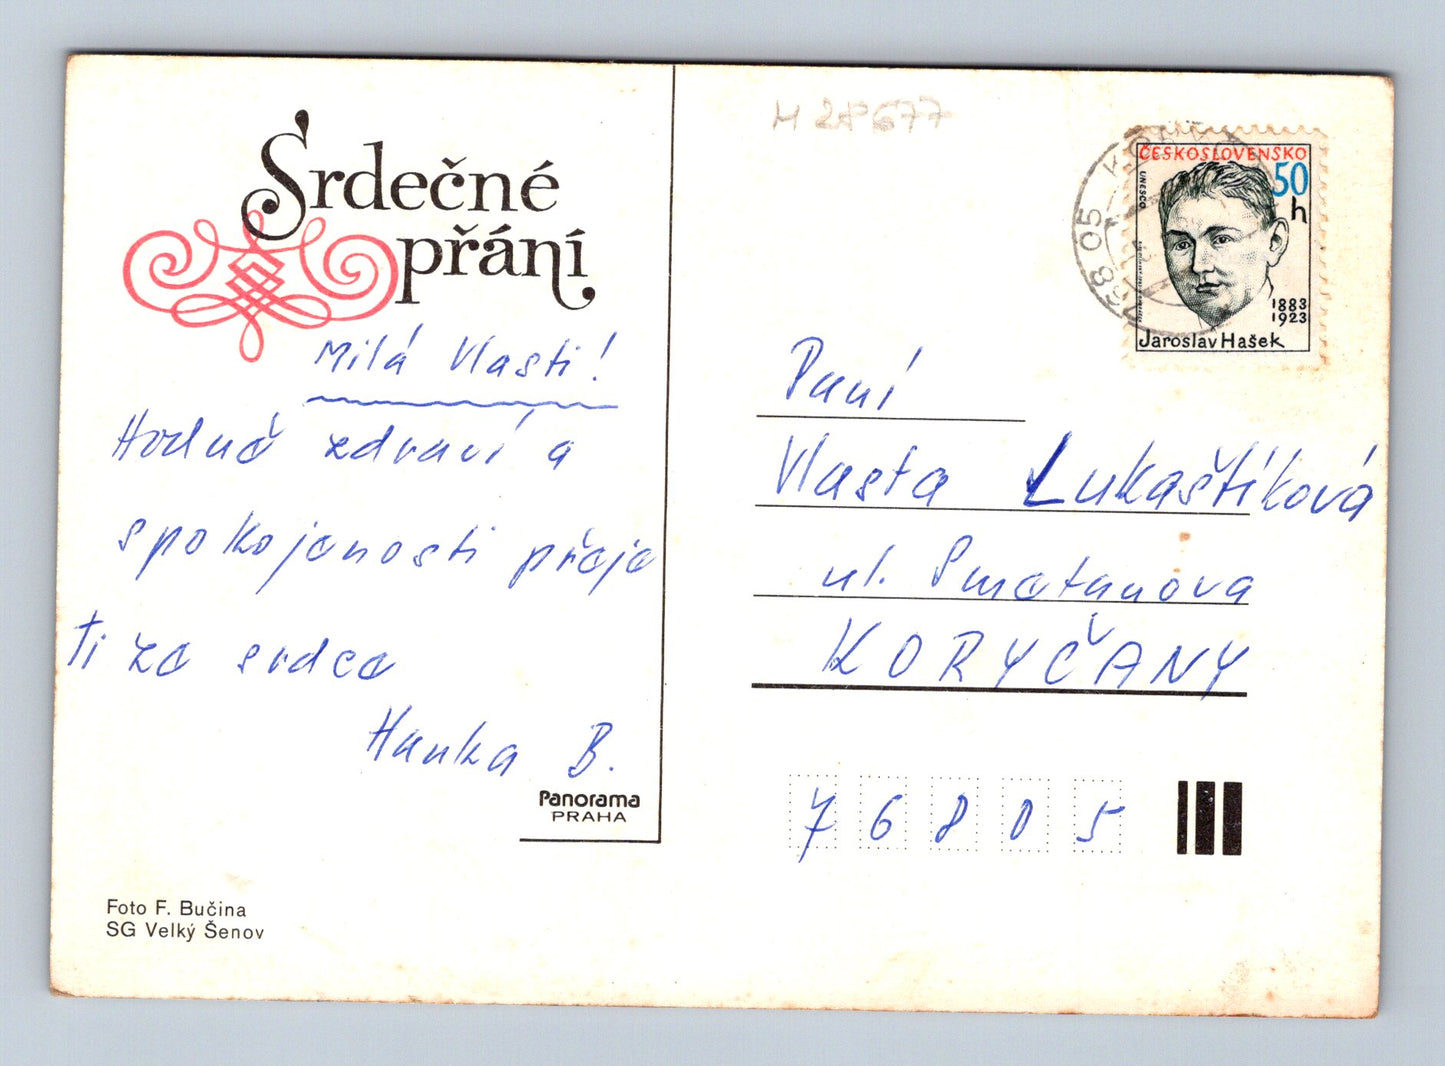 Srdečné
přání
Milá Vlasti!
Hodně zdraví a
spokojenosti přeje
Ti ze srdce
Hanka B.
Panorama
PRAHA
Foto F. Bučina
SG Velký Šenov
M 28677
ČESKOSLOVENSKO
50
h
UNESCO
1883
1923
Jaroslav Hašek
768 05
Paní
Vlasta Lukaštíková
ul. Smetanova
KORYČANY
76805